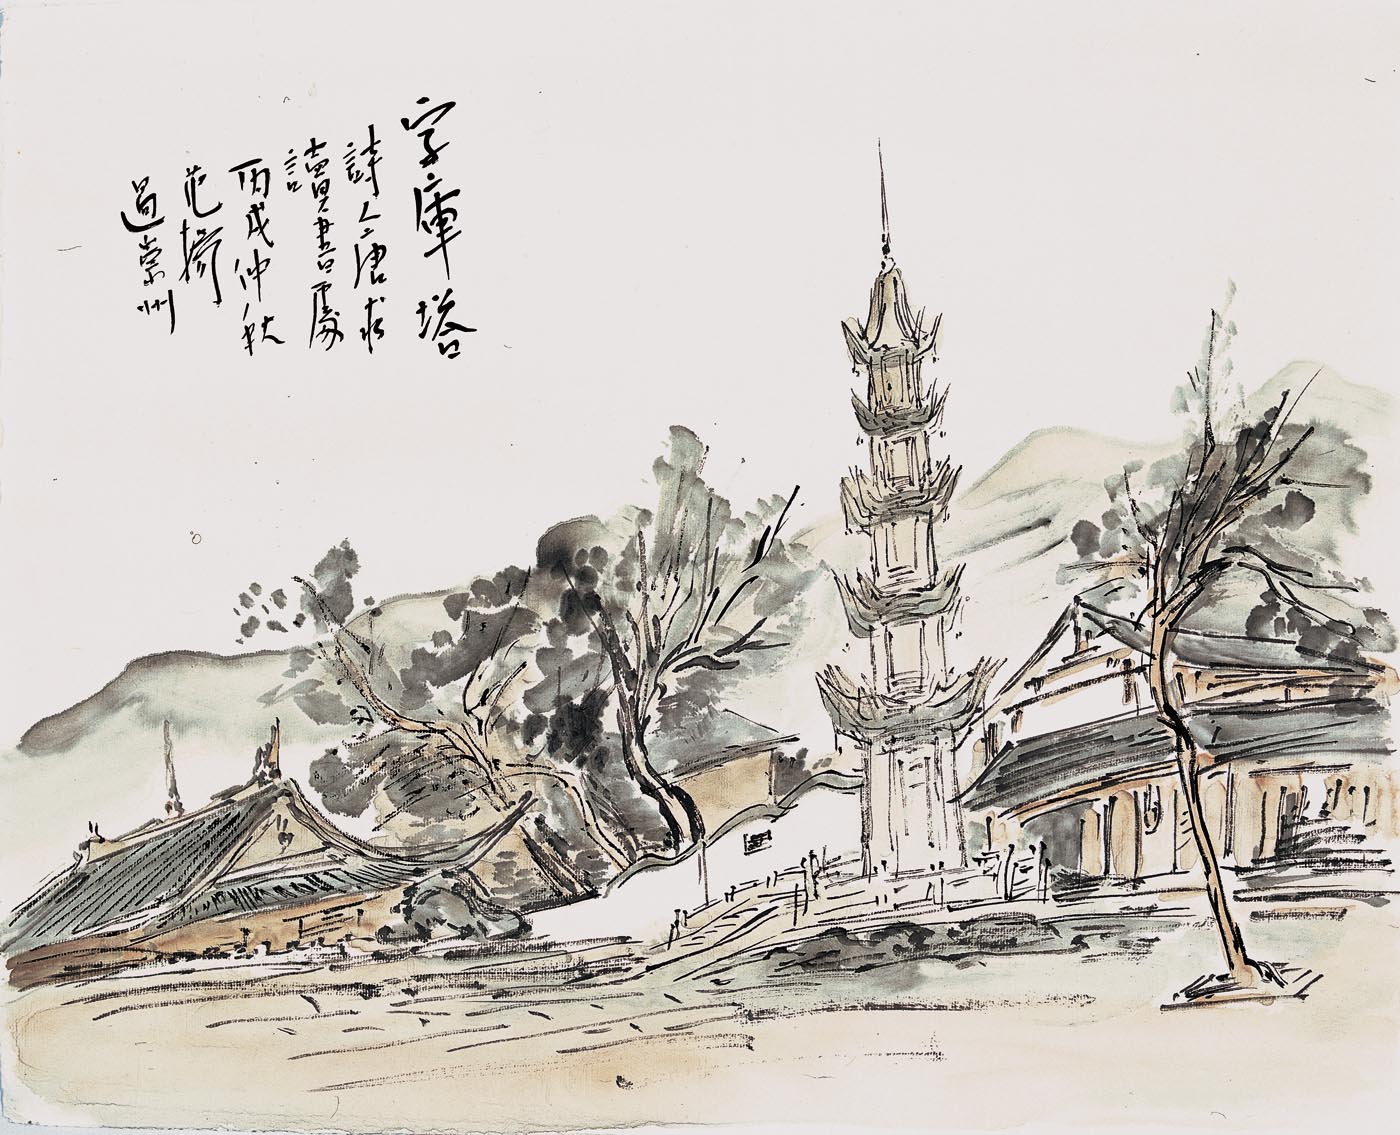 字庫塔
詩人唐求
讀書處
丙戌仲秋
范揚
過崇州